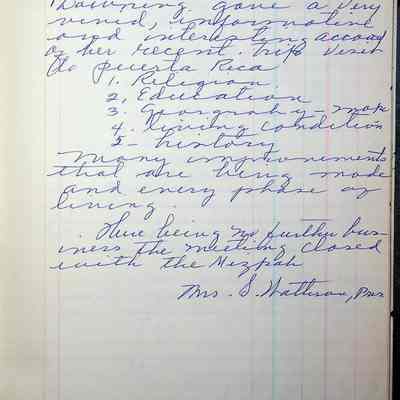 Downing gave a very
vivid, informative
and interesting account
of her recent trip visit
to puerta Rica
1. Religion
2. Education
3. Geography - map
4. living condition
5 - history
many improvements
that are being made
and every phase of
living.
There being no further bus-
iness the meeting closed
with the Mizpah
Mrs. S.